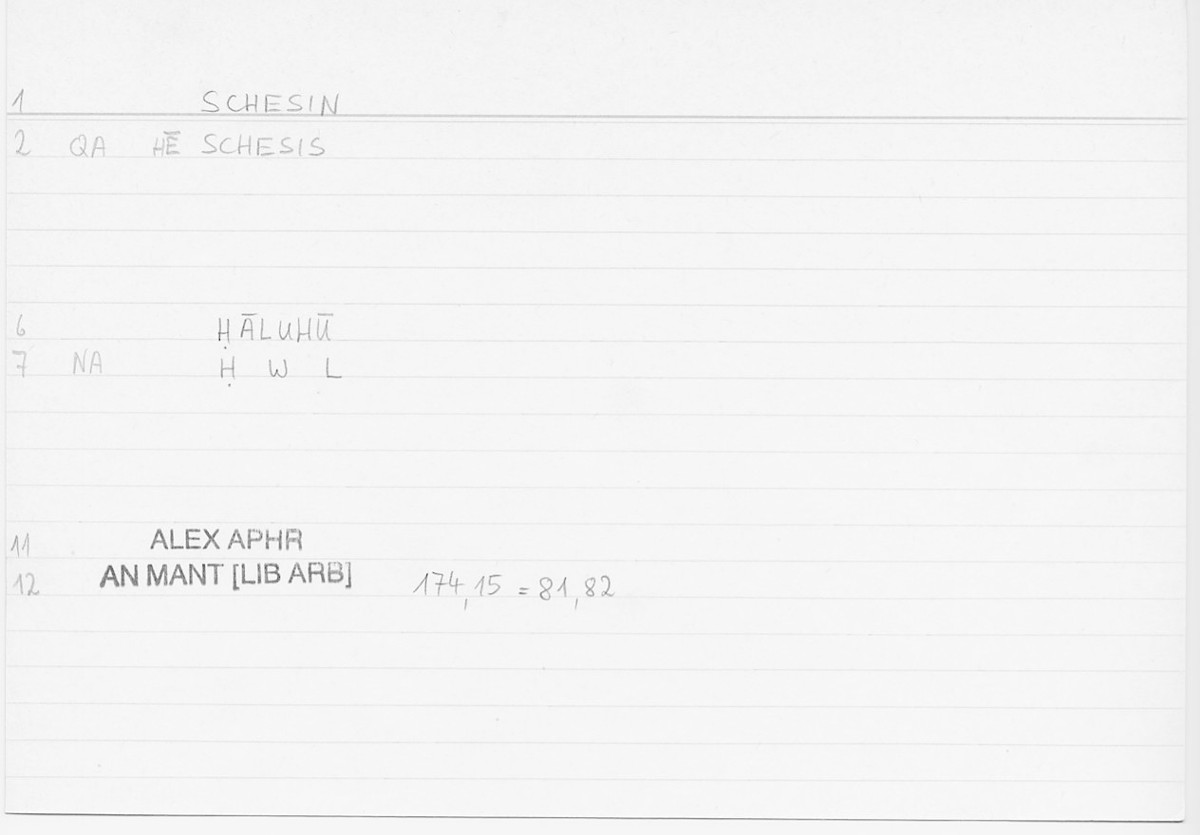 1 SCHESIN
2 QA HĒ SCHESIS
6 ḤĀLUHŪ
7 NA Ḥ W L
11 ALEX APHR
12 AN MANT [LIB ARB] 174,15 = 81,82